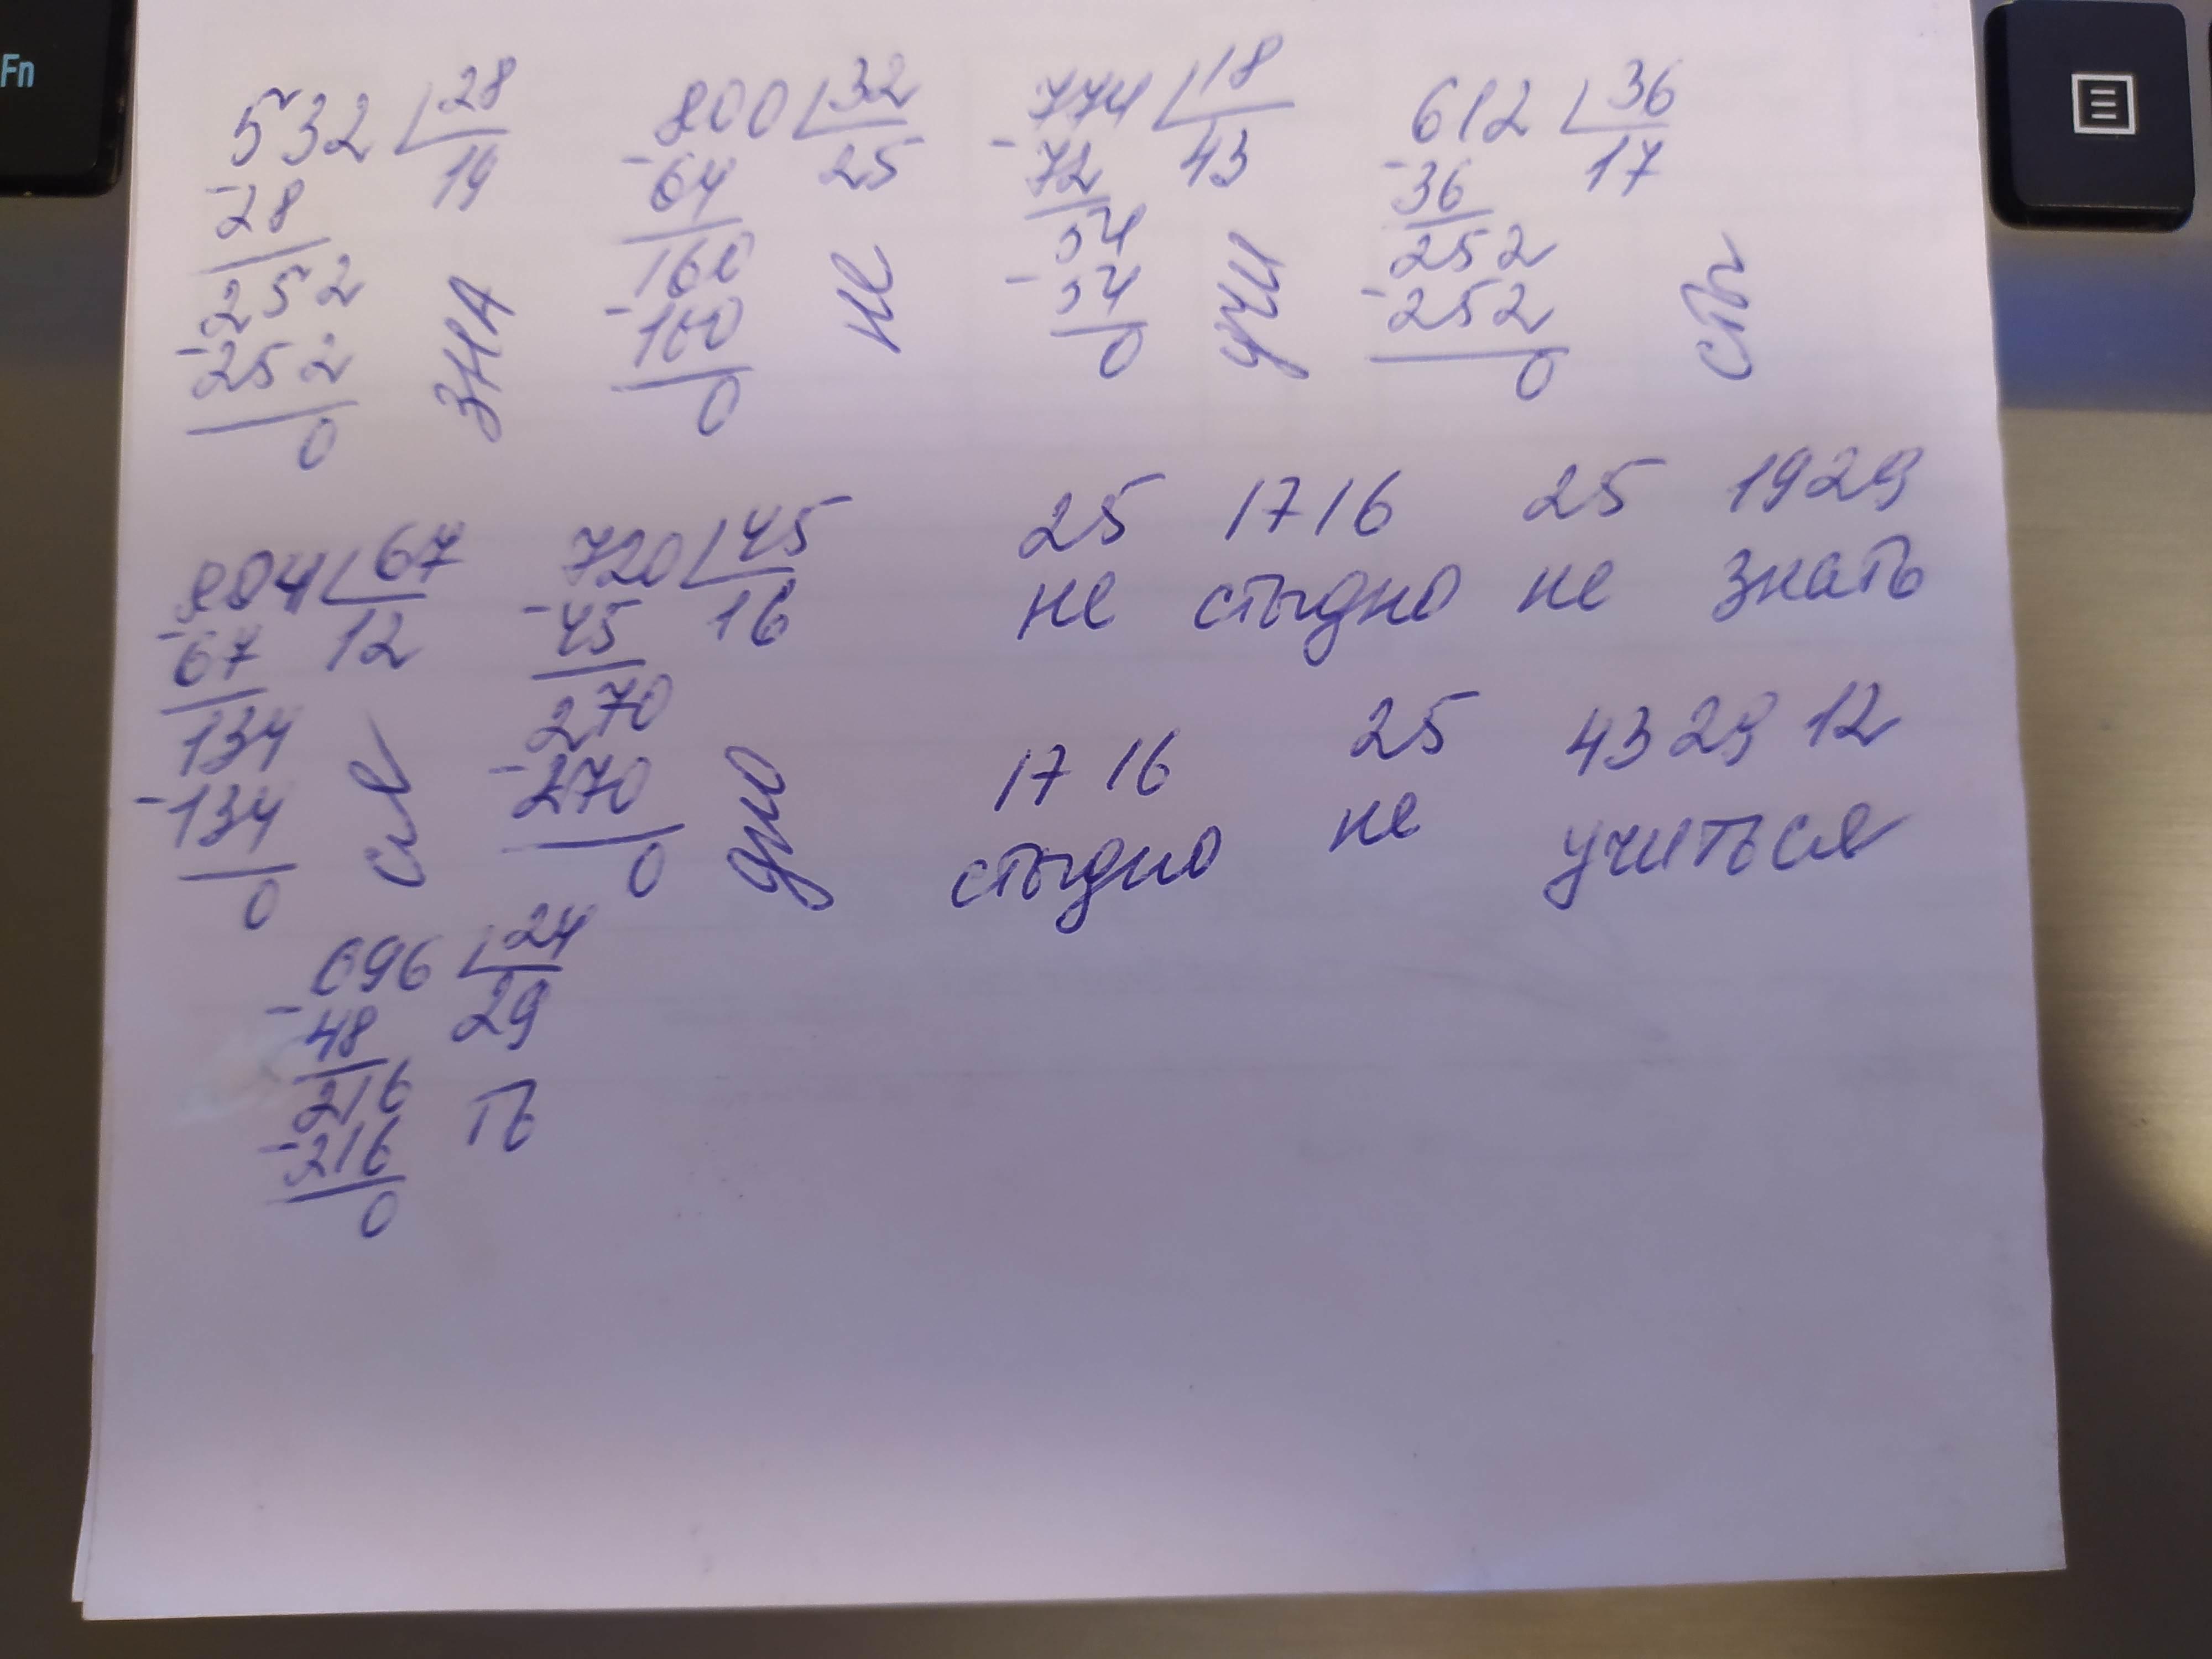 Fn
532 28
-28 19
252
-252
0
ЗНА
800 32
-64 25
160
-160
0
не
774 18
-72 43
54
-54
0
учи
612 36
-36 17
252
-252
0
сты
804 67
-67 12
134
-134
0
ся
720 45
-45 16
270
-270
0
дно
25 1716 25 1929
не стыдно не знать
1716 25 432912
стыдно не учиться
696 24
-48 29
216
-216
0
ть